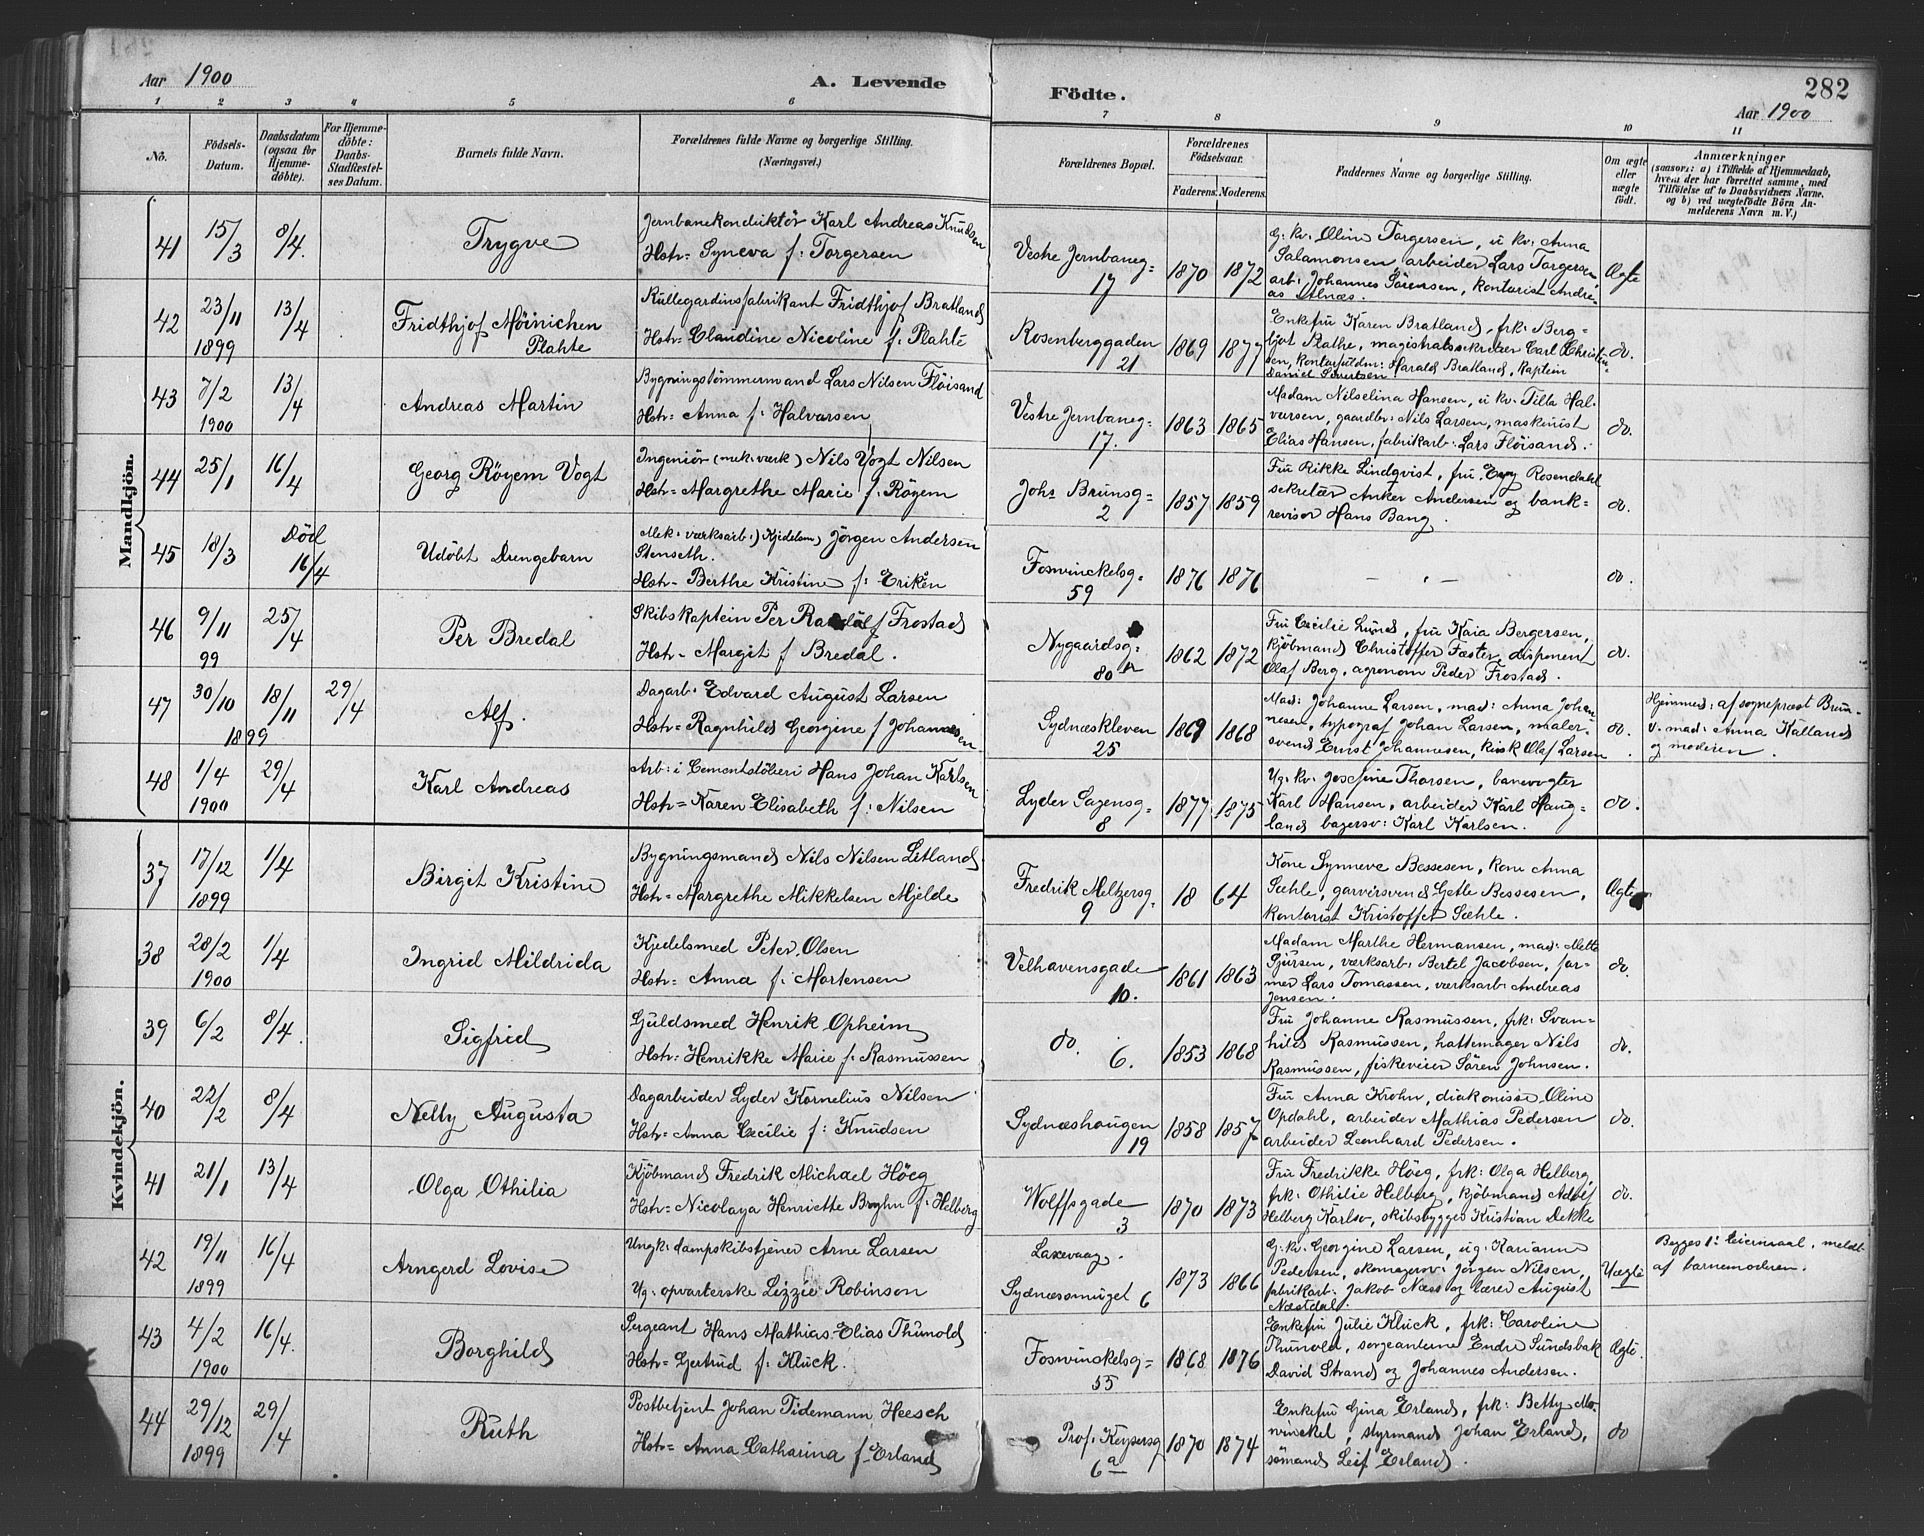 Aar 1900
A. Levende
Födte.
282
Aar 1900
1 2 3 4 5 6 7 8 9 10 11
No.
Födsels-
Datum.
Daabsdatum
(ogsaa for
Hjemme-
döbte).
For Hjemme-
döbte:
Daabs-
Stadfæstel-
ses Datum.
Barnets fulde Navn.
Forældrenes fulde Navne og borgerlige Stilling.
(Næringsvei.)
Forældrenes Bopæl.
Forældrenes
Födselsaar.
Faderens. Moderens.
Faddernes Navne og borgerlige Stilling.
Om ægte
eller
uægte
födt.
Anmærkninger
(saasom: a) i Tilfælde af Hjemmedaab,
hvem der har forrettet samme, med
Tilföielse af to Daabsvidners Navne,
og b) ved uægtefödte Börn An-
melderens Navn m. V.)
Mandkjön.
41 15/3 8/4. Trygve
Jernbanekonduktör Karl Andreas Knudsen
Hstr. Syneva f: Torgersen
Vestre Jernbaneg=
17
1870 1872
G: kv: Oline Torgersen, u kv: Anna
Salamonsen arbeider Lars Torgersen,
arb: Johannes Sörensen, kontorist Andre-
as Alnæs.
Ægte
42 23/11 1899 13/4
Fridthjof Möinichen
Plahte
Rullegardinsfabrikant Fridthjof Bratland
Hstr= Claudine Nicoline f: Plahte
Rosenberggaden
21
1869 1877
Enkefru Karen Bratland, frk: Berg=
ljot Plathe, magistratssekretær Carl Christen-
sen, kontorfuldm: Harald Bratland, Kaptein
Daniel Sivertsen
do.
43 7/2 1900 13/4
Andreas Martin
Bygningstömmermand Lars Nilsen Flöisand
Hstr= Anna f: Halvorsen
Vestre Jernbaneg=
17.
1863 1865
Madam Nilselina Hansen, u kv: Tilla Hal-
vorsen, gaardbr: Nils Larsen, maskinist
Elias Hansen, fabrikarb: Lars Flöisand.
do.
44 25/1 16/4
Georg Röyem Vogt
Ingeniör (mek: værk) Nils Vogt Nilsen
Hstr= Margrethe Marie f: Röyem
Johs Brunsg=
2
1857 1859
Fru Rikke Lindqvist, fru Rosendahl
sekretær Anker Andersen og bank=
revisor Hans Bang.
do.
45 18/3 Död 16/4
Udöbt Drengebarn
Mek: værksarb:) Kjedelsm) Jörgen Andersen
Stenseth.
Hstr= Berthe Kristine f:
Foswinckelsg=
59
1876 1876
do.
46 9/11 99 25/4
Per Bredal
Skibskaptein Per Frostad
Hstr= Margit f Bredal.
Nygaardsg=
80a
1862 1872
Fru Cecilie Lund, fru Kaia Bergersen,
kjöbmand Christoffer Fæster, disponent
Olaf Berg, agronom Peder Frostad.
do.
47 30/10 1899 18/11 29/4
Alf.
Dagarb: Edvard August Larsen
Hstr= Ragnhild Georgine f Johannesen
Sydnæskleven
25
1869 1868
Mad: Johanne Larsen, mad: Anna Johan
nesen, typograf Johan Larsen, maler-
svend Ernst Johannesen, Olaf Larsen
do.
Hjemmed: af sogneprest Brun-
v. mad: Anna Kalland
og moderen.
48 1/4 1900 29/4
Karl Andreas
Arb: i Cementstöberi Hans Johan Karlsen
Hstr= Karen Elisabeth f: Nilsen
Lyder Sagensg=
8
1877 1875
Ug: kv: Josefine Thorsen, banevogter
Karl Hansen, arbeider Karl Haug=
land bagersv: Karl Karlsen.
do.
Kvindekjön.
37 17/12 1899 1/4
Birgit Kristine
Bygningsmand Nils Nilsen Litland
Hstr= Margrethe Mikkelsen Mjelde
Fredrik Meltzersg.
9
18 64
Kone Synneve Bessesen, kone Anna
Sæhle, garversvend Getle Bessesen,
kontorist Kristoffer Sæhle.
Ægte
38 28/2 1900 1/4
Ingrid Mildrida
Kjedelsmed Peter Olsen
Hstr= Anna f: Mortensen
Velhavensgade
10.
1861 1863
Madam Marthe Hermansen, mad: Mette
Sjursen, værksarb: Bertel Jacobsen, for-
mer Lars Tomassen, værksarb: Andreas
Jensen.
do.
39 6/2 8/4.
Sigfrid
Guldsmed Henrik Opheim
Hstr= Henrikke Marie f: Rasmussen
do.
6.
1853 1868
Fru Johanne Rasmussen, frk: Svan-
hild Rasmussen, hattemager Nils
Rasmussen, fiskeveier Sören Johnsen.
do.
40 22/2 8/4
Nelly Augusta
Dagarbeider Lyder Kornelius Nilsen
Hstr= Anna Cecilie f: Knudsen
Sydnæshaugen
19
1858 1857
Fru Anna Krohn, diakonisse Oline
Opdahl, arbeider Mathias Pedersen
arbeider Leonhard Pedersen.
do.
41 21/1 13/4
Olga Othilia
Kjöbmand Fredrik Michael Höeg
Hstr= Nicolaya Henriette f: Helberg
Wolffsgade
3
1870 1873
Fru Fredrikke Höeg, frk: Olga Helberg,
frk: Othilie Helberg, kjöbmand Adolf
Helberg Karlsv, skibsbygger Kristian Dekke
do.
42 19/11 1899 16/4
Arngerd Lovise
Ungk: dampskibstjener Arne Larsen
Ug: opvarterske Lizzie Robinson
Laxevaag.
Sydnæssmuget 6
1873 1866
G: kv: Georgine Larsen, ug: Karianne
Pedersen, skomagersv: Jörgen Nilsen,
fabrikarb: Jakob Næss og lærer August
Næstdal.
Uægte
Begges 1: leiermaal, meldt
af barnemoderen.
43 4/2 1900 16/4.
Borghild
Sergeant Hans Mathias Elias Thunold
Hstr= Gertrud f: Kluck.
Foswinckelsg=
55
1868 1876
Enkefru Julie Kluck, frk: Caroline
Thunold, sergeanterne Endre Sundsbak
David Strand og Johannes Andersen.
Ægte.
44 29/12 1899 29/4
Ruth
Postbetjent Johan Tidemann Heesch
Hstr= Anna Catharina f. Erland
Prof: Keysersg
6a
1870 1874
Enkefru Gina Erland, frk: Betty Mo-
winckel, styrmand Johan Erland,
sömand Leif Erland.
do